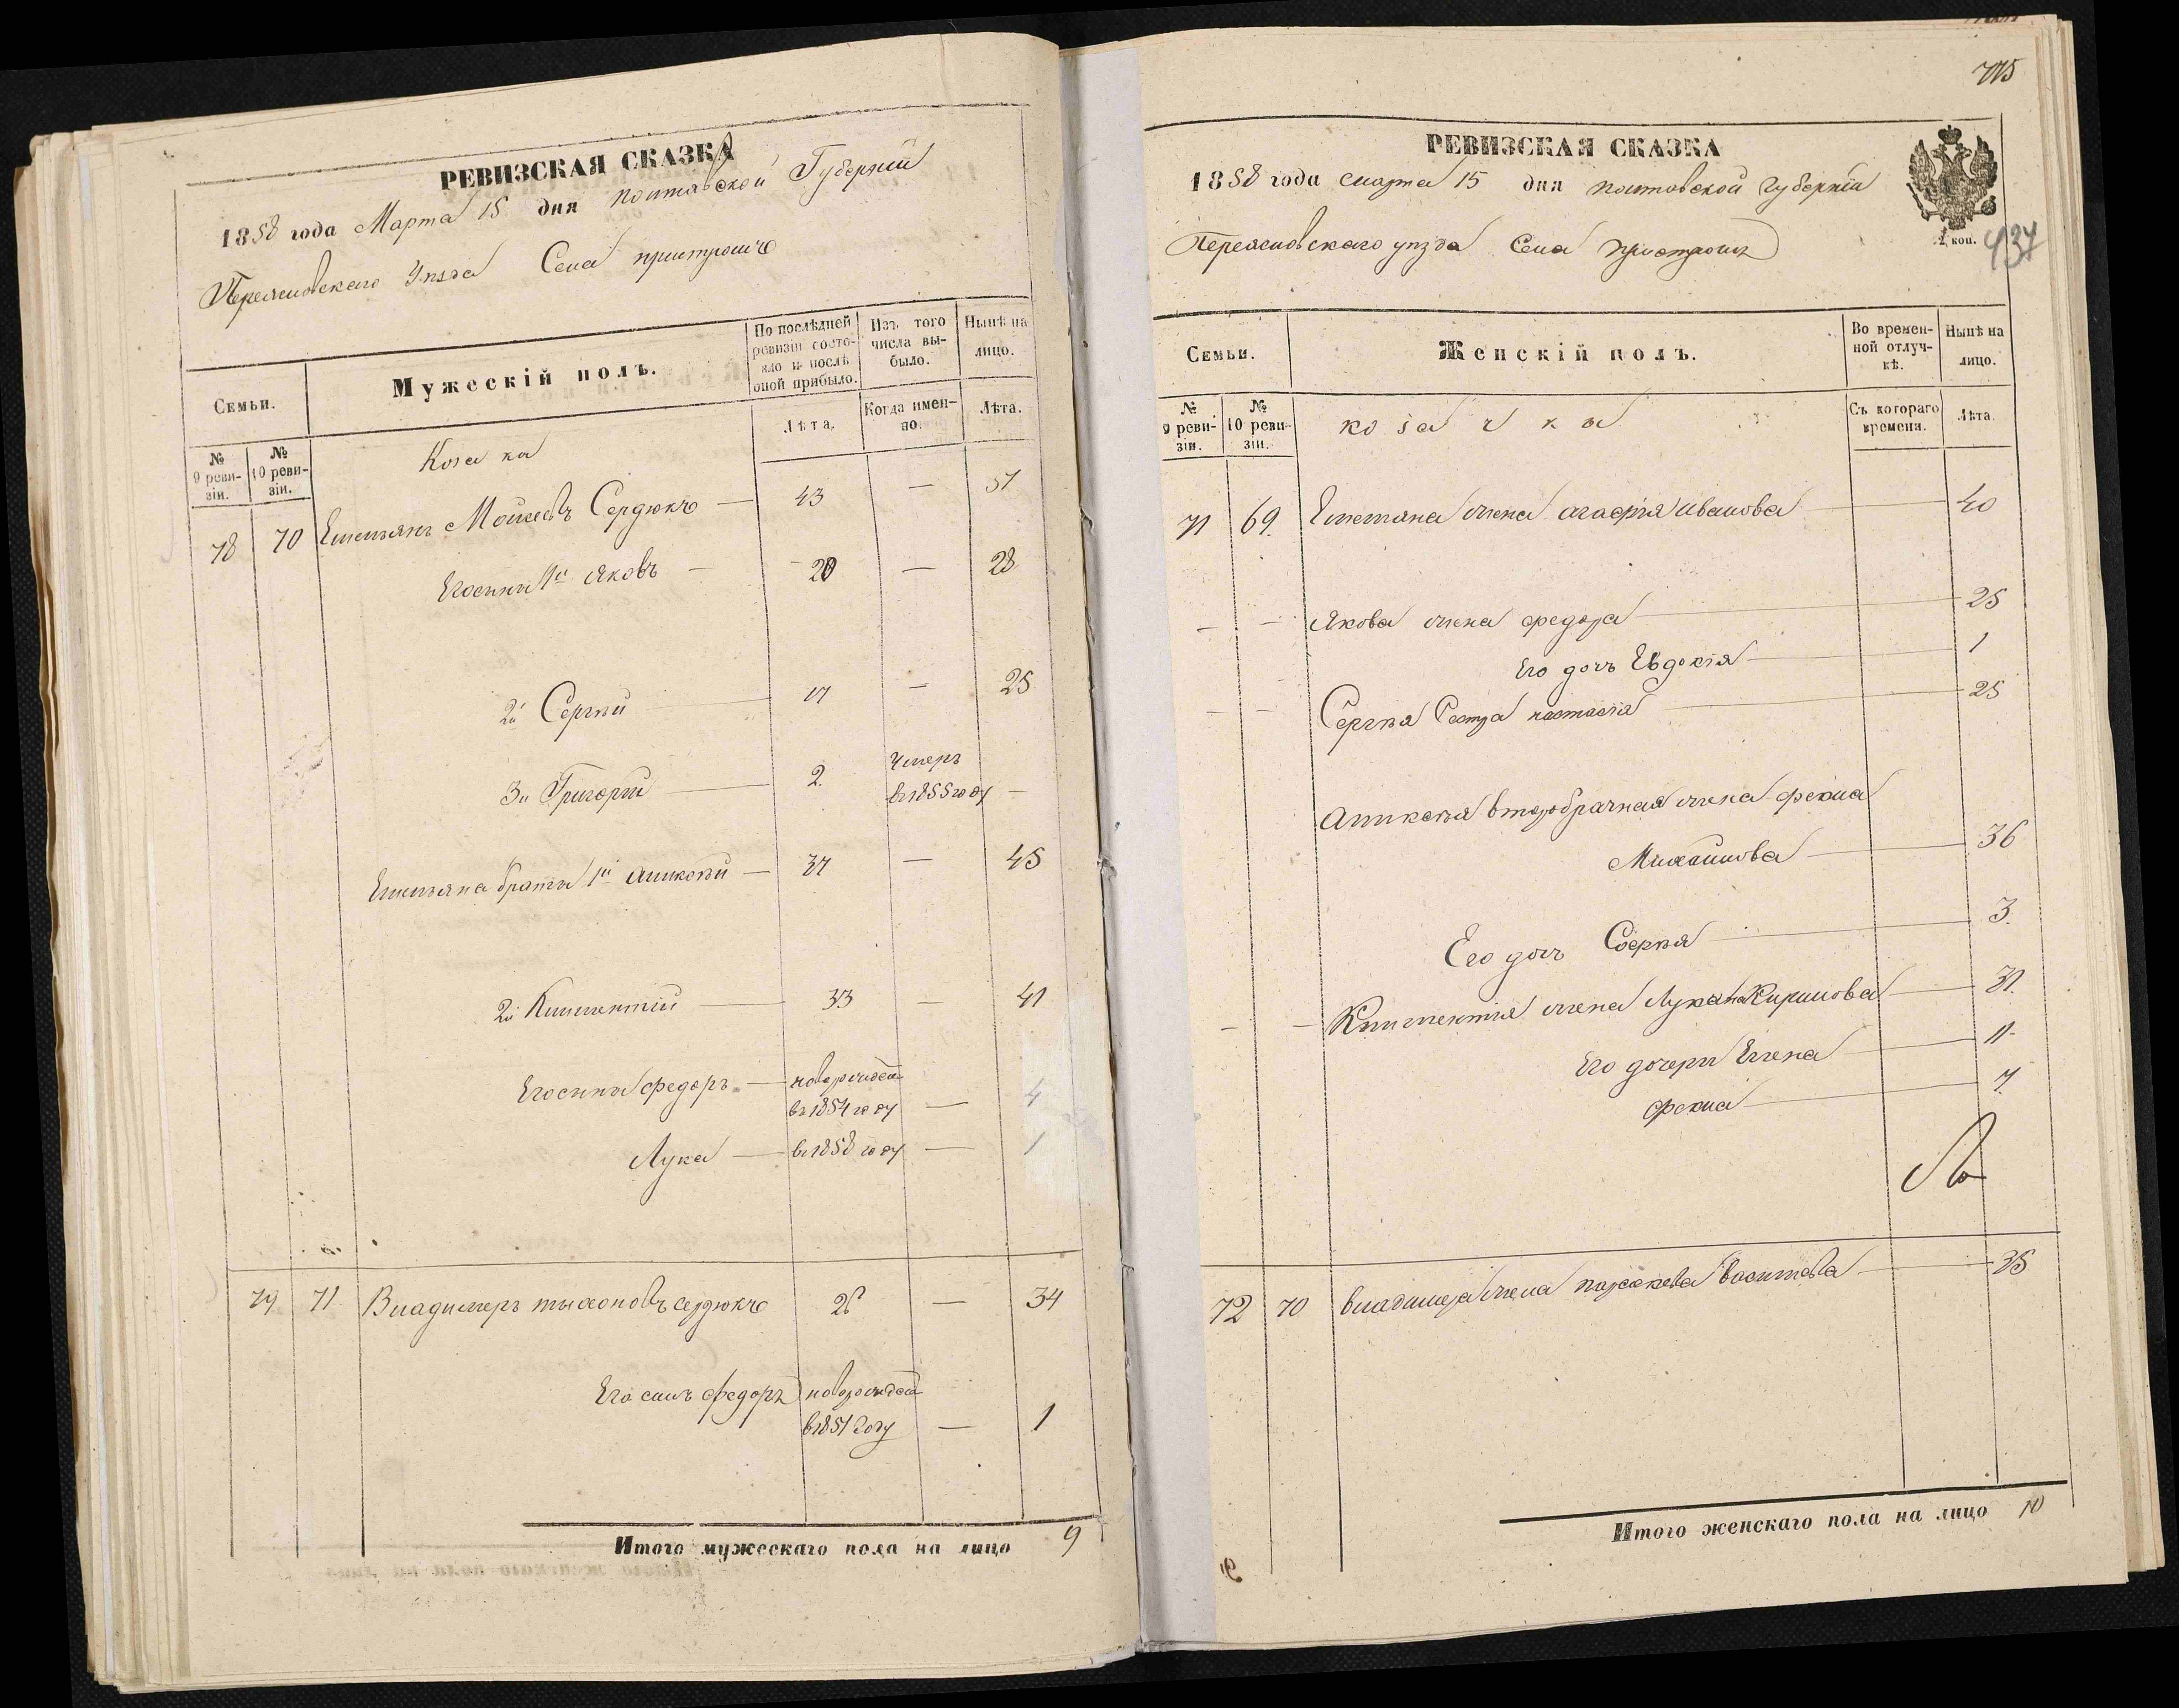 РЕВИЗСКАЯ СКАЗКА
1858 года Марта 15 дня полтавской Губернии
Переясловскаго Уѣзда Села пристромъ
Семьи.
Мужескій полъ.
По послѣдней ревизіи состояло и послѣ оной прибыло.
Изъ того числа выбыло.
Нынѣ на лицо.
№ 9 ревизіи.
№ 10 ревизіи.
Лѣта.
Когда именно.
Лѣта.
Козаки
78 70 Емельянъ Моисеевъ Сердюкъ — 43 — 51
Его сыны 1й Яковъ — 20 — 28
2й Сергѣй — 17 — 25
3й Григорій — 2. Умеръ
въ 1855 году —
Емельяна браты 1й Аликсѣй — 37 — 45
2й Климентій — 33 — 41
Его сыны федоръ — новорожден
въ 1854 году — 4
Лука — въ 1858 году — 1
79 71 Владимеръ тыхоновъ сердюкъ 26 — 34
Его сынъ федоръ новорожден
в 1857 году — 1
Итого мужескаго пола на лицо 9
775
РЕВИЗСКАЯ СКАЗКА
1858 года марта 15 дня полтовской губерніи
Переясловскаго уѣзда Села пристромъ
2 коп.
437
Семьи.
Женскій полъ.
Во временной отлучкѣ.
Нынѣ на лицо.
№ 9 ревизіи.
№ 10 ревизіи.
козачки
Съ котораго времени.
Лѣта.
71 69. Емельяна жена агафія иванова — 40
— — Якова жена федора — 25
Его дочъ Евдокія — 1
— — Сергѣя Сестра настасія — 25
Аликсѣя второбрачная жена фекла
Михайлова — 36
Его дочъ Софѣя — 3.
— — Климентія жена Лукія Кирилова — 31.
Его дочери Елена — 11.
фекла — 7.
72 70 владимера жена параскева васильева — 35
Итого женскаго пола на лицо 10